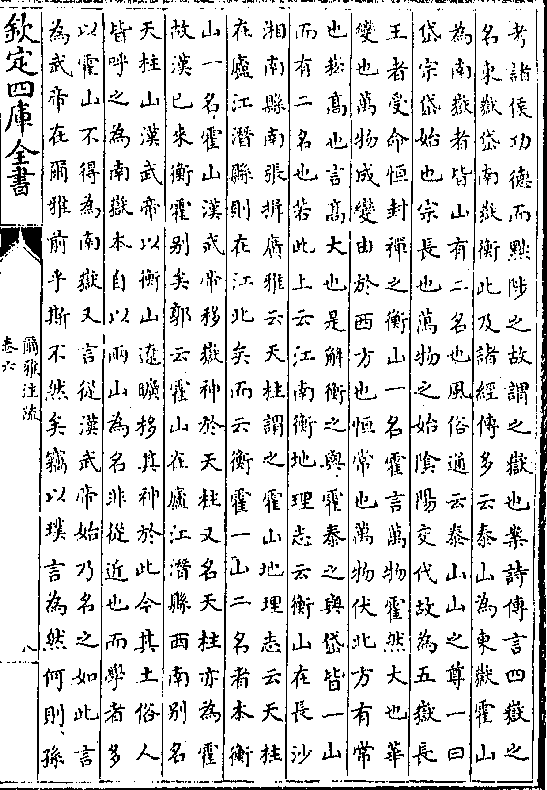 考諸侯功德而黜陟之故謂之嶽也案詩傳言四嶽之
名東嶽岱南嶽衡此及諸經傳多云泰山為東嶽霍山
為南嶽者皆山有二名也風俗通云泰山山之尊一曰
岱宗岱始也宗長也萬物之始陰陽交代故為五嶽長
王者受命恒封禪之衡山一名霍言萬物霍然大也華
變也萬物成變由於西方也恒常也萬物伏北方有常
也崧高也言高大也是解衡之與霍泰之與岱皆一山
而有二名也若此上云江南衡地理志云衡山在長沙
湘南縣南張揖廣雅云天柱謂之霍山地理志云天柱
在廬江潛縣則在江北矣而云衡霍一山二名者本衡
山一名霍山漢武帝移嶽神於天柱又名天柱亦為霍
故漢已來衡霍別矣郭云霍山在廬江潛縣西南別名
天柱山漢武帝以衡山遼曠移其神於此今其土俗人
皆呼之為南嶽本自以兩山為名非從近也而學者多
以霍山不得為南嶽又言從漢武帝始乃名之如此言
為武帝在爾雅前乎斯不然矣竊以璞言為然何則孫
欽定四庫全書
爾雅注疏
卷六
八